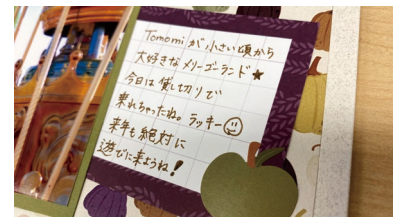 Tomomiが小さい頃から
大好きなメリーゴーランド★
今日は貸し切りで
乗れちゃったね。ラッキー☺
来年も絶対に
遊びに来ようね!